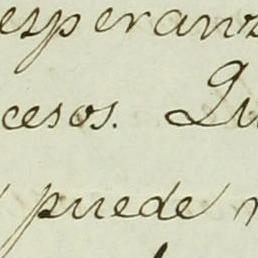 esperanz
cesos. Qu
puede